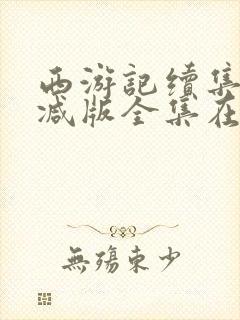 西游記續集
减版全集在
無殤東少